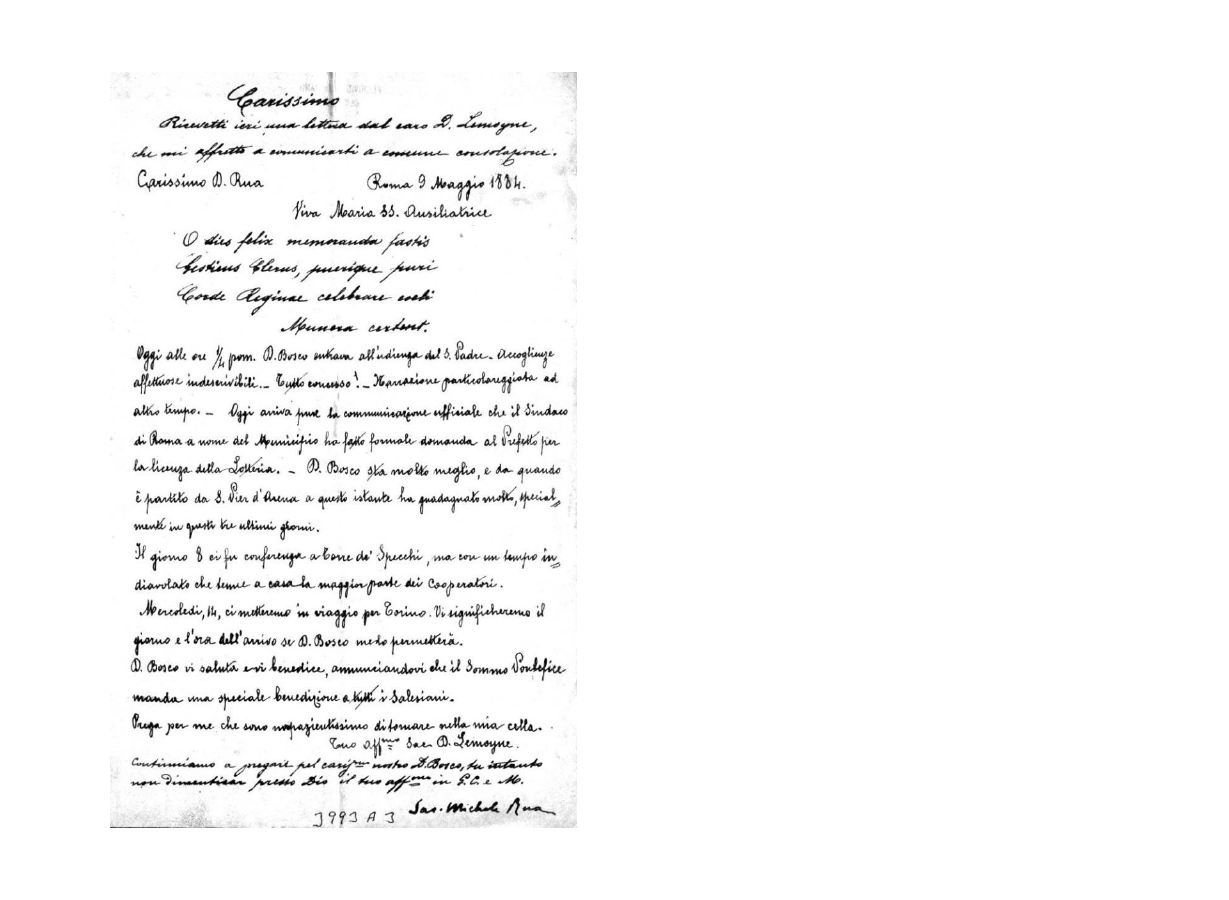 Carissimo
Ricevetti ieri una lettera dal caro D. Lemoyne,
che mi affretto a comunicarti a comune consolazione.
Carissimo D. Rua Roma 9 Maggio 1884.
Viva Maria SS. Ausiliatrice
O dies felix memoranda fastis
Clerus, puerique puri
Corde Reginae celebrare coeli
Munera certent.
Oggi alle ore 1/4 pom. D. Bosco entrava all'udienza del S. Padre. Accoglienze
affettuose indescrivibili. _ Tutto concesso! _ Narrazione particolareggiata ad
altro tempo. _ Oggi arriva pure la communicazione officiale che il Sindaco
di Roma a nome del Municipio ha fatto formale domanda al Prefetto per
la licenza della Lotteria. _ D. Bosco sta molto meglio, e da quando
è partito da S. Pier d'Arena a questo istante ha guadagnato molto, special=
mente in questi tre ultimi giorni.
Il giorno 8 ci fu conferenza a Torre de' Specchi, ma con un tempo in=
diavolato che tenne a casa la maggior parte dei Cooperatori.
Mercoledì, 14, ci metteremo in viaggio per Torino. Vi significheremo il
giorno e l'ora dell'arrivo se D. Bosco me lo permetterà.
D. Bosco vi saluta e vi benedice, annunciandovi che il Sommo Pontefice
manda una speciale benedizione a tutti i Salesiani.
Prega per me che sono di tornare nella mia cella.
Tuo affmo Sac. D. Lemoyne.
Continuiamo a pregare pel carissmo nostro D. Bosco, tu intanto
non dimenticar presso Dio il tuo affmo in G. C. e M.
Sac. Michele Rua
3993 A 3